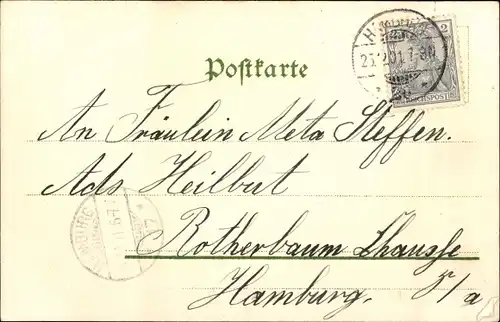 Postkarte
2
REICHSPOST
An Fräulein Meta Steffen.
Ads Heilbut
Rotherbaum Chausse
Hamburg. 5/a